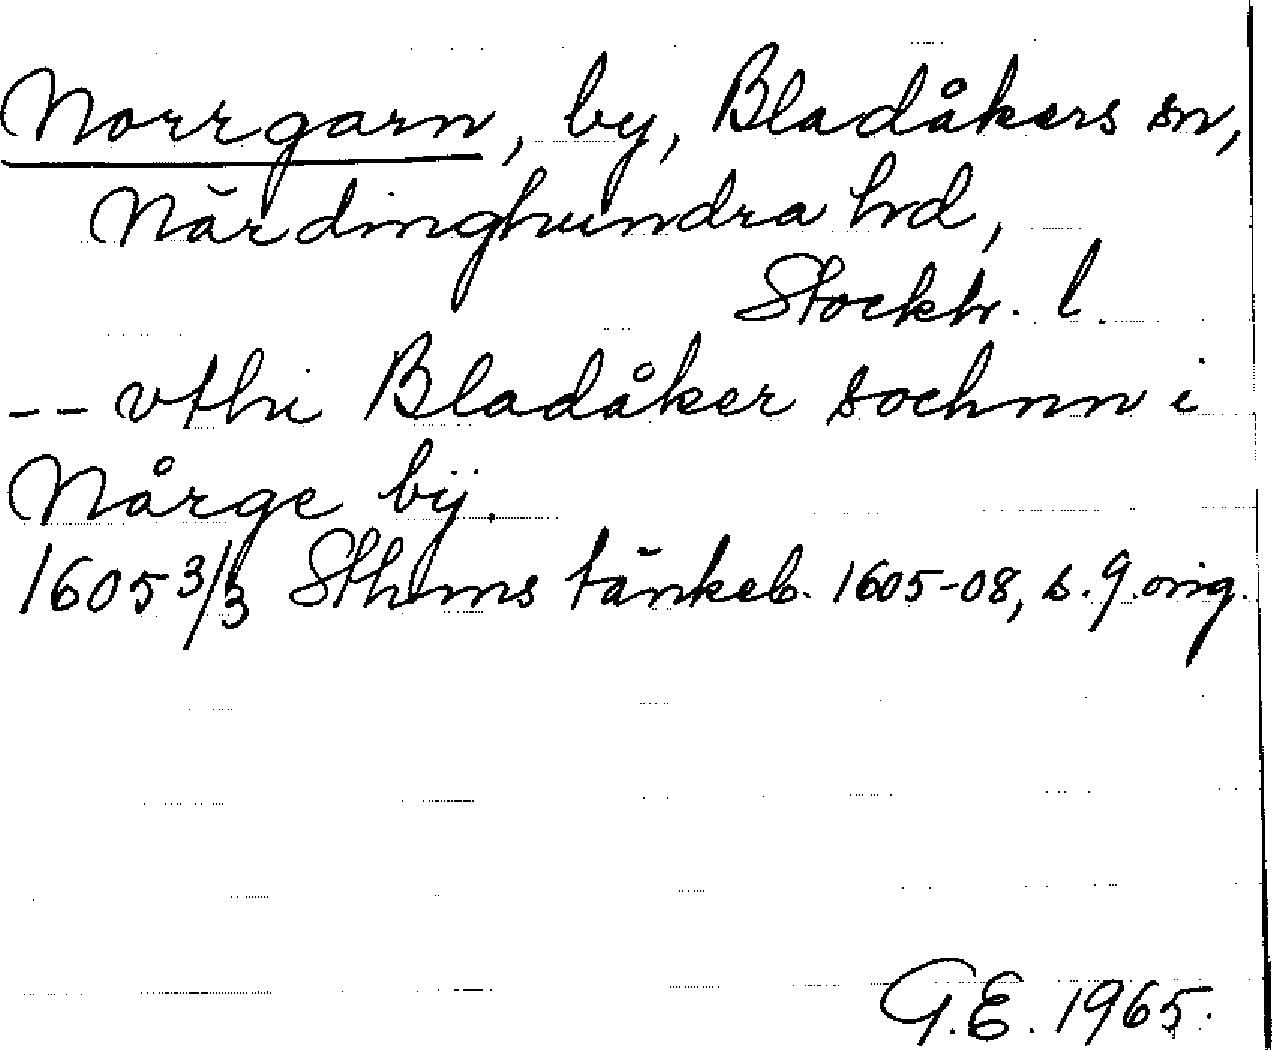 Norrgarn, by, Bladåkers sn,
Närdinghundra hrd,
Stockh. l.
-- vthi Bladåker sochnn i
Nårge bÿ.
1605 3/3 Sthms tänkeb. 1605-08, s. 9 orig.
G.E. 1965.